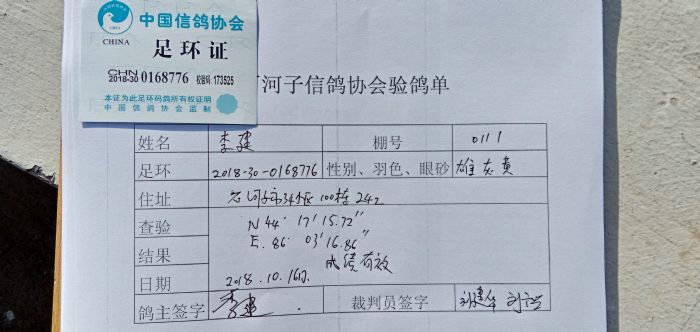 中国信鸽协会
CHINA
足环证
CHN
2018-30 0168776 校验码:173525
本证为此足环码鸽所有权证明
中国信鸽协会监制
河子信鸽协会验鸽单
姓名 李建 棚号 0111
足环 2018-30-0168776 性别、羽色、眼砂 雄 灰 黄
住址 石河子市34小区100栋242
查验 N 44° 17' 15.72"
E. 86° 03' 16.86"
结果 成绩有效
日期 2018.10.16日
鸽主签字 李建 裁判员签字 刘建华